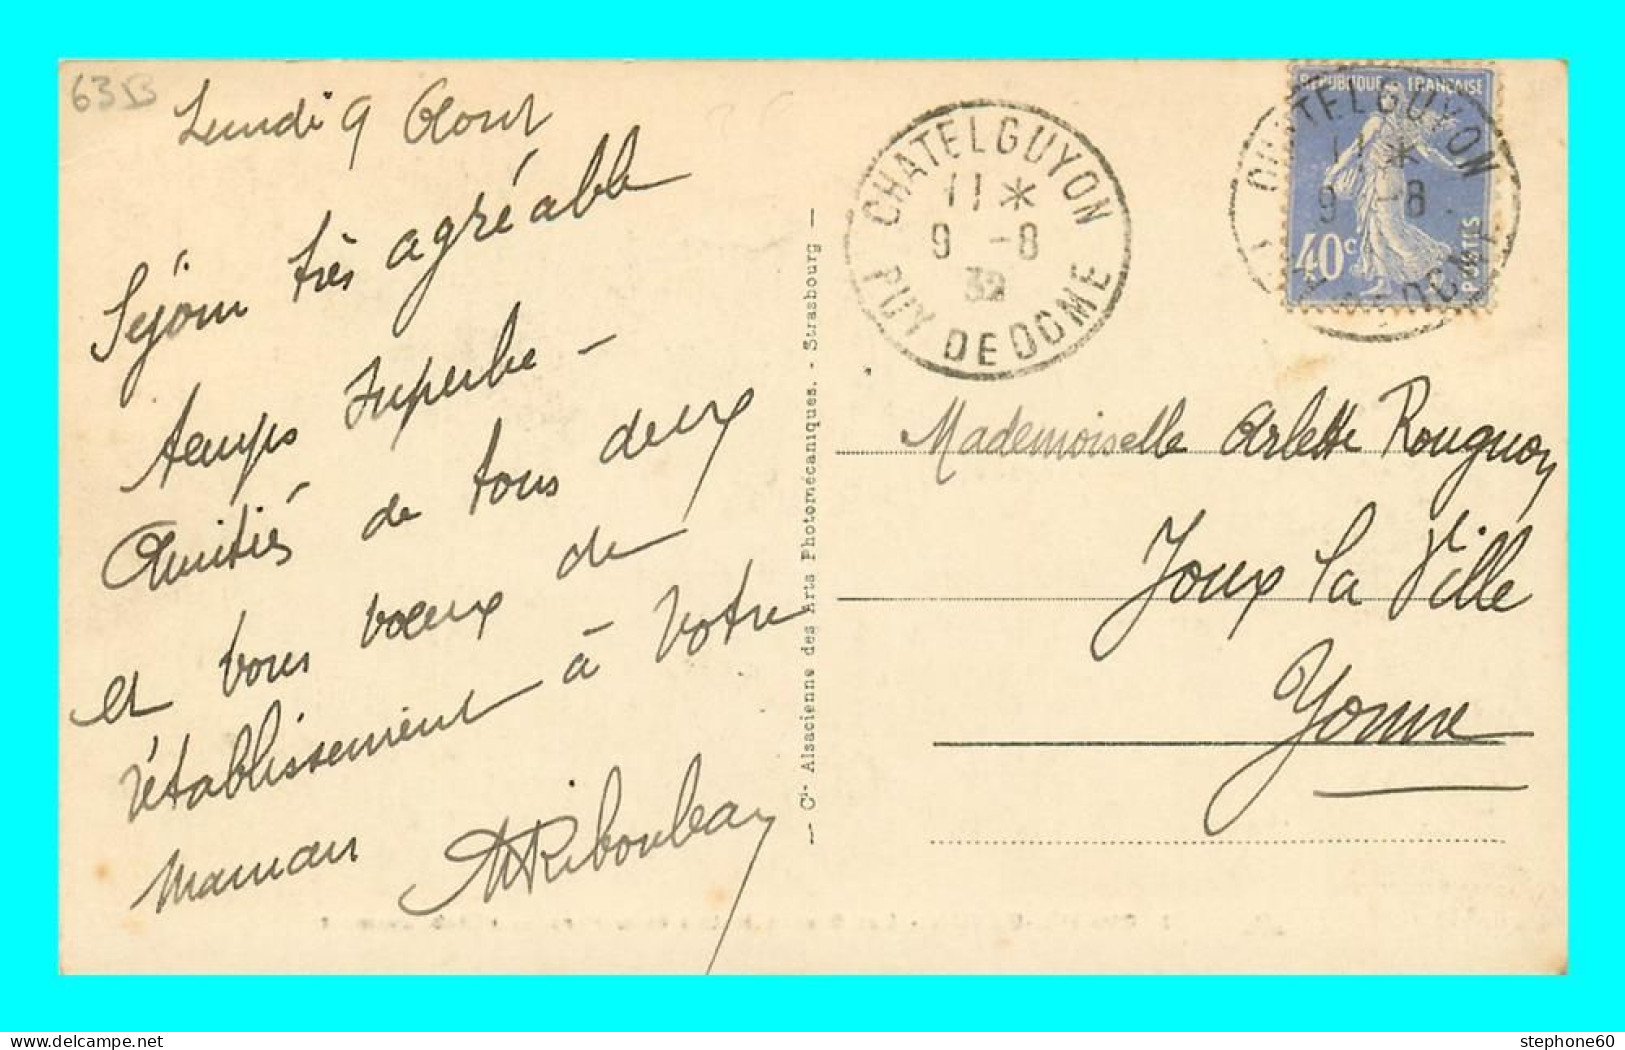 63 B
Lundi 9 Aout
Séjour très agréable
temps superbe -
Amitiés de tous deux
et bons vœux de
rétablissement à Votre
maman
Ribouleau
— Cie Alsacienne des Arts Photomécaniques. - Strasbourg —
CHATELGUYON
11 *
9 -8
PUY DE DOME
REPUBLIQUE FRANÇAISE
40c
POSTES
CHATELGUYON
11 *
9 -8
Mademoiselle Arlette Rougnon
Joux la Ville
Yonne
stephone60